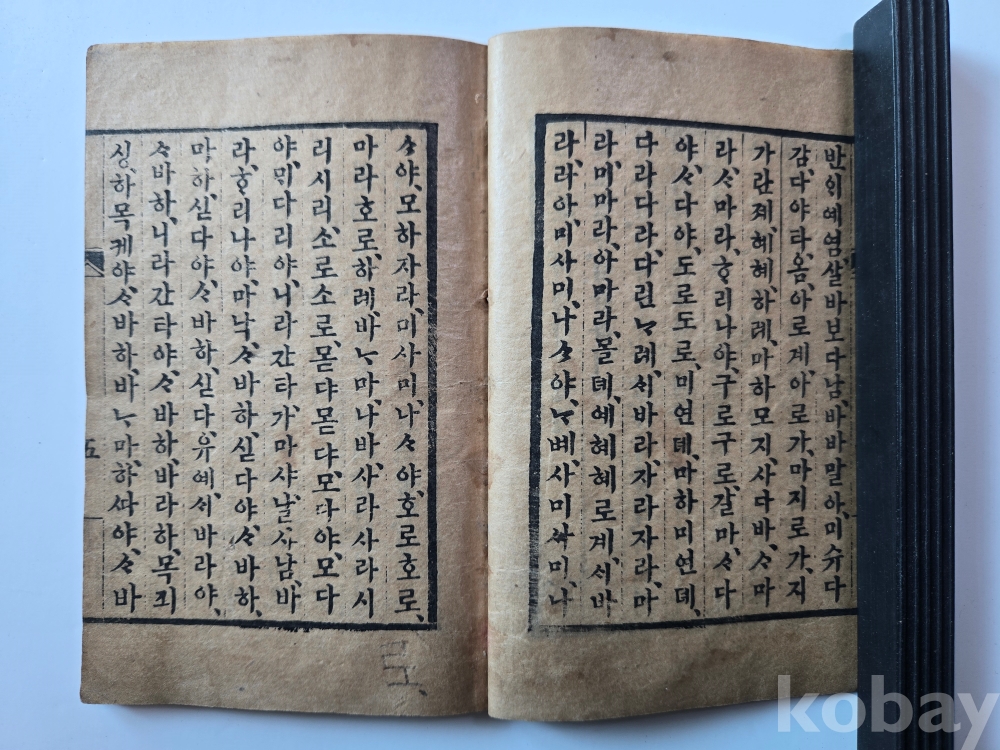 반이예염、살바보다남、바바말아、미슈다
감、다야라、옴、아로계아로가、마지로가、지
가란졔、혜혜、하례、마하모지、사다바、ᄉᆞ마
라、ᄉᆞ마라、ᄒᆞ리나야、구로구로、갈마、ᄉᆞ다
야、ᄉᆞ다야、도로도로、미연뎨、마하미연뎨、
다라다라、다린ᄂᆞ례、셔바라자라자라、마
라、미마라、아마라、몰톄、예혜혜、로계、셔바
라、라아、미사미、나ᄉᆞ야、ᄂᆞ볘、사미사미、나
ᄉᆞ야、모하자라、미사미、나ᄉᆞ야、호로호로、
마라호로、하례、바ᄂᆞ마、나바、사라사라시
리시리、소로소로、몯댜몯댜、모다야、모다
야、ᄆᆡ다리야、니라간타가마샤、날사남、바
라、ᄒᆞ리나야、마낙、ᄉᆞ바하、싣다야、ᄉᆞ바하、
마하、싣다야、ᄉᆞ바하、싣다유예、셔바라야、
ᄉᆞ바하、니라간타야、ᄉᆞ바하、바라하、목
싱、하목케야、ᄉᆞ바하、바ᄂᆞ마、하야、ᄉᆞ바
五
kobay